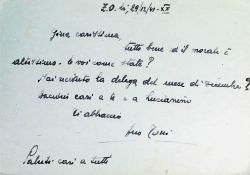 Z.O. li, 29/12/41-XX
Gina carissima,
tutto bene ed il morale è
altissimo. E voi come state?
Hai ricevuto la delega del mese di dicembre?
Bacioni cari a te e a Lucianino
ti abbraccio
tuo
Saluti cari a tutti